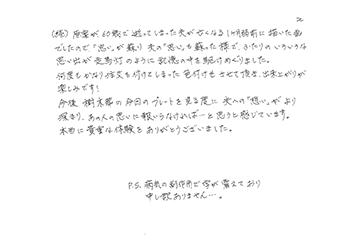 (続) 原案が60歳で逝ってしまった夫が亡くなる1ヶ月程前に描いた画
でしたので"思い"が蘇り 夫の"思い"も蘇った様で、ふたりのいろいろな
思い出が走馬灯のように記憶の中を駆けめぐりました。
何度もかなり注文も付けてしまった色付けもさせて頂き、出来上がりが
楽しみです!
今後 樹木葬の今日のプレートを見る度に 夫への"想い"がより
深まり、あの人の思いに報いらなければ…と思うと感じています。
本当に貴重な体験を ありがとうございました。
P.S. 病気の副作用で字が震えており
申し訳ありません…。